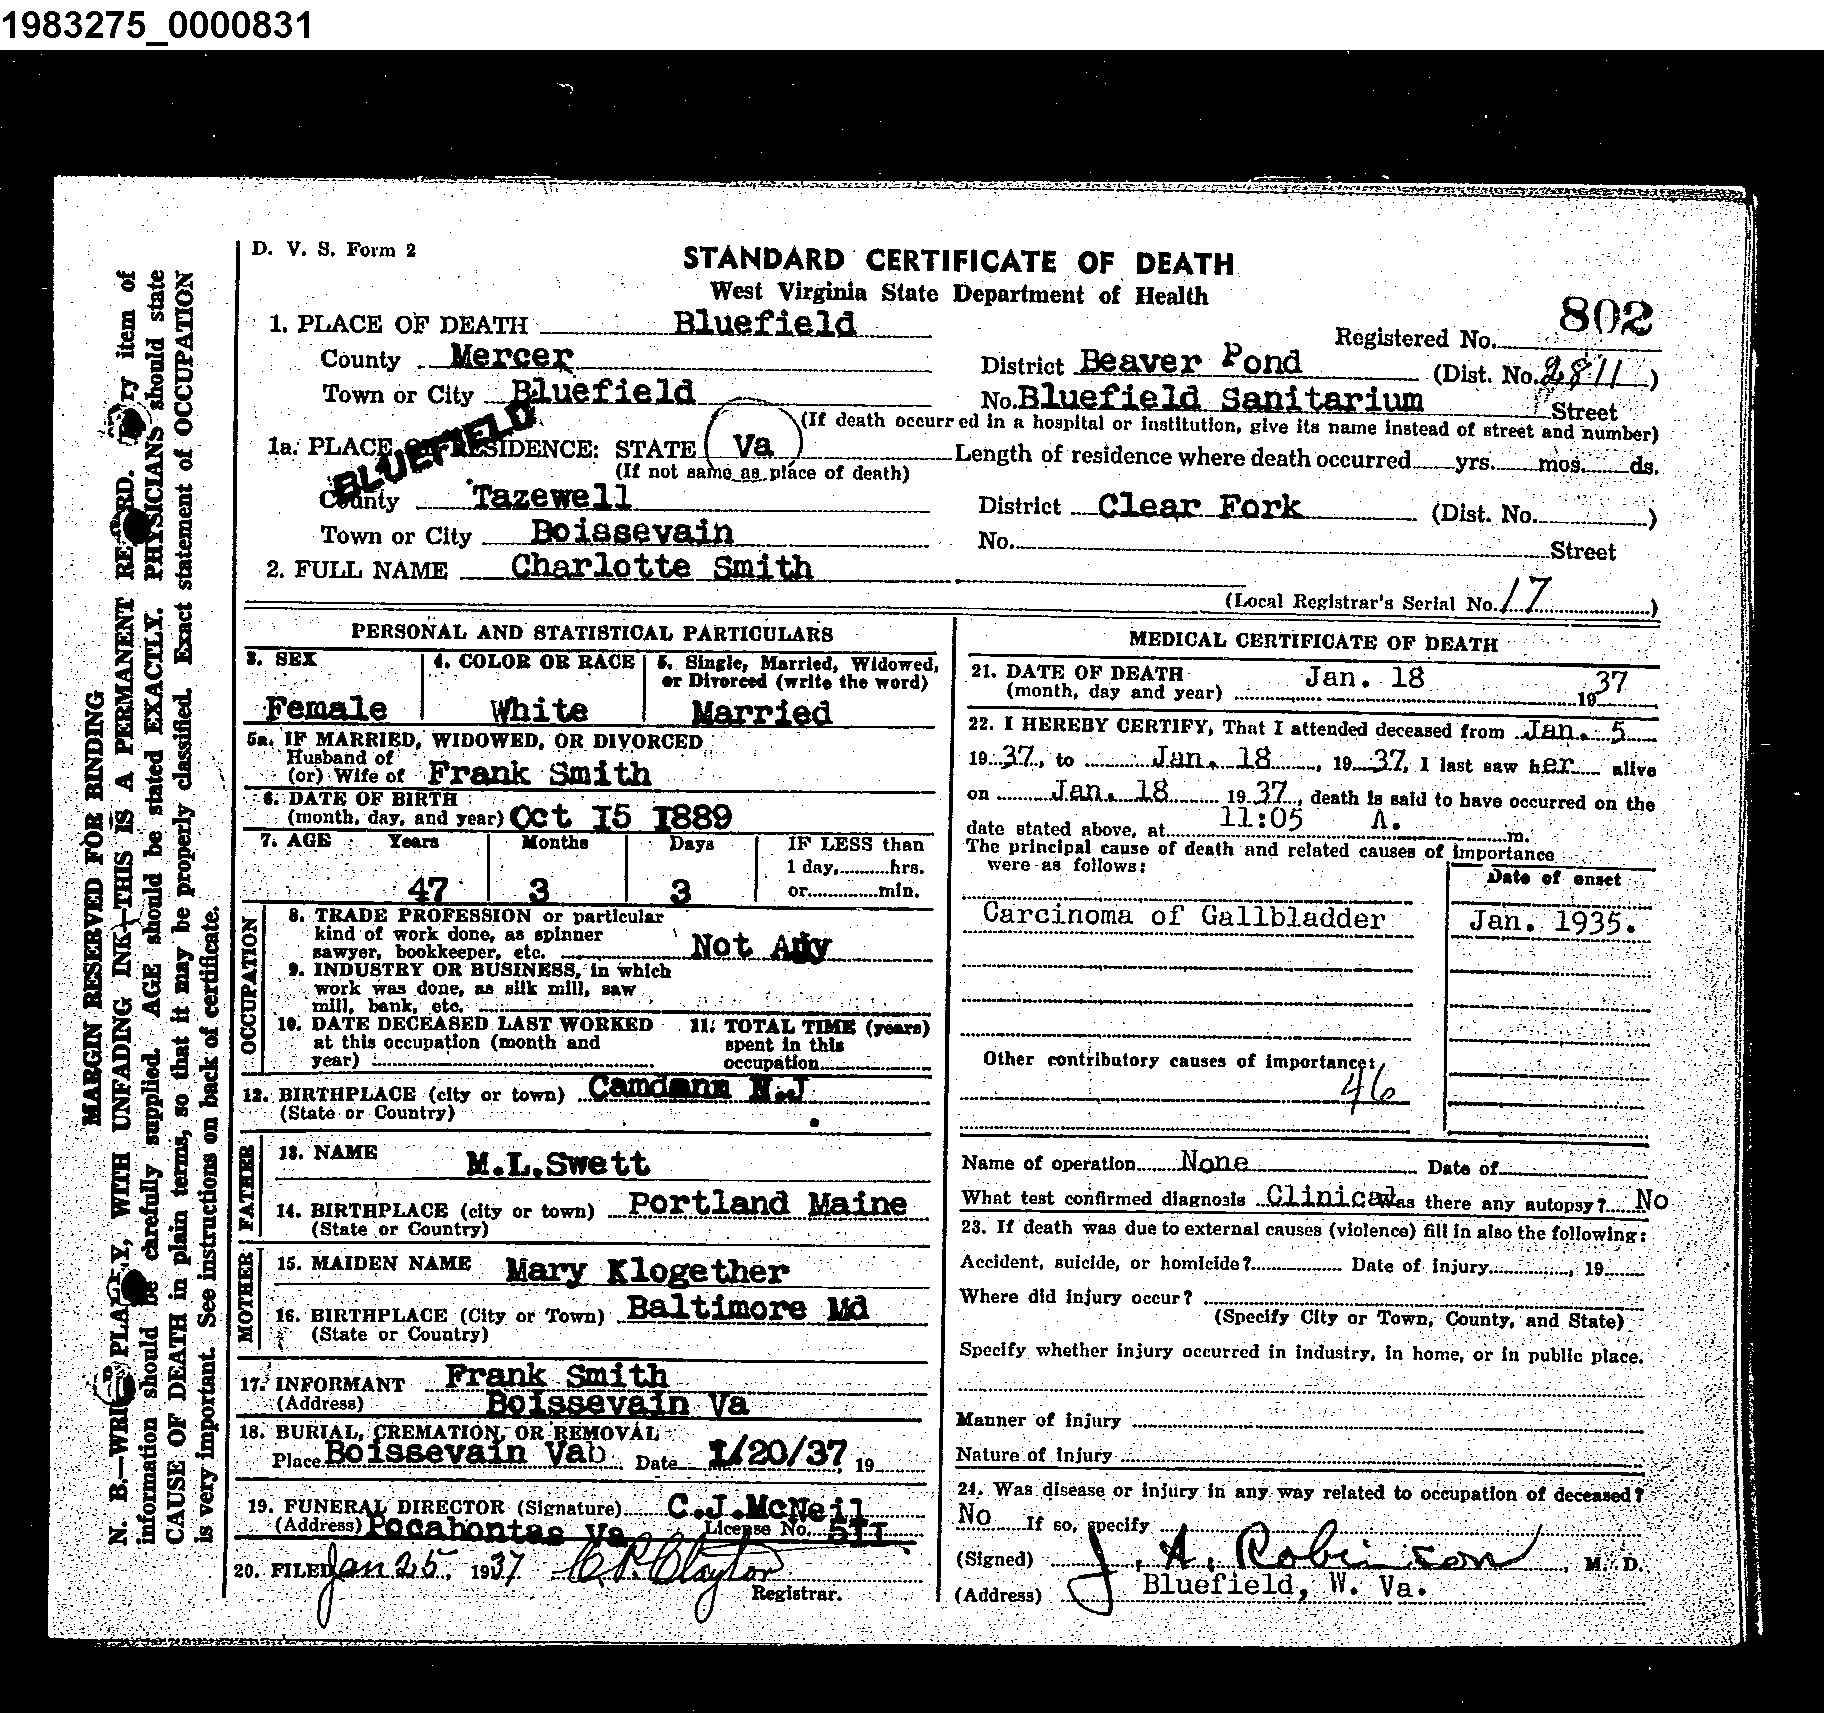 1983275_0000831
D. V. S. Form 2
STANDARD CERTIFICATE OF DEATH
West Virginia State Department of Health
802
1. PLACE OF DEATH Bluefield
Registered No.
County Mercer
District Beaver Pond (Dist. No. 2811)
Town or City Bluefield
No. Bluefield Sanitarium Street
(If death occurred in a hospital or institution, give its name instead of street and number)
BLUEFIELD
1a. PLACE RESIDENCE: STATE Va
(If not same as place of death)
Length of residence where death occurred yrs. mos. ds.
County Tazewell
District Clear Fork (Dist. No. )
Town or City Boissevain
No. Street
2. FULL NAME Charlotte Smith
(Local Registrar's Serial No. 17 )
PERSONAL AND STATISTICAL PARTICULARS
3. SEX
Female
4. COLOR OR RACE
White
5. Single, Married, Widowed,
or Divorced (write the word)
Married
5a. IF MARRIED, WIDOWED, OR DIVORCED
Husband of
(or) Wife of Frank Smith
6. DATE OF BIRTH
(month, day, and year) Oct I5 I889
7. AGE Years Months Days IF LESS than
1 day, hrs.
47 3 3 or min.
OCCUPATION
8. TRADE PROFESSION or particular
kind of work done, as spinner
sawyer, bookkeeper, etc. Not Any
9. INDUSTRY OR BUSINESS, in which
work was done, as silk mill, saw
mill, bank, etc.
10. DATE DECEASED LAST WORKED
at this occupation (month and
year)
11. TOTAL TIME (years)
spent in this
occupation
12. BIRTHPLACE (city or town) Camdenn N.J.
(State or Country)
FATHER
13. NAME M.L.Swett
14. BIRTHPLACE (city or town) Portland Maine
(State or Country)
MOTHER
15. MAIDEN NAME Mary Klogether
16. BIRTHPLACE (City or Town) Baltimore Md
(State or Country)
17. INFORMANT Frank Smith
(Address) Boissevain Va
18. BURIAL, CREMATION, OR REMOVAL
Place Boissevain Vab Date I/20/37, 19
19. FUNERAL DIRECTOR (Signature) C.J.McNeil
(Address) Pocahontas Va License No. 5II
20. FILED Jan 25, 1937 C. P. Clayton
Registrar.
MEDICAL CERTIFICATE OF DEATH
21. DATE OF DEATH Jan. 18
(month, day and year) 19 37
22. I HEREBY CERTIFY, That I attended deceased from Jan. 5
19 37, to Jan. 18, 19 37, I last saw her alive
on Jan. 18 19 37, death is said to have occurred on the
date stated above, at 11:05 A. m.
The principal cause of death and related causes of importance
were as follows:
Date of onset
Carcinoma of Gallbladder Jan. 1935.
Other contributory causes of importance:
46
Name of operation None Date of
What test confirmed diagnosis Clinical Was there any autopsy? No
23. If death was due to external causes (violence) fill in also the following:
Accident, suicide, or homicide? Date of injury , 19
Where did injury occur?
(Specify City or Town, County, and State)
Specify whether injury occurred in industry, in home, or in public place.
Manner of injury
Nature of injury
24. Was disease or injury in any way related to occupation of deceased?
No If so, specify
(Signed) J. A. Robinson, M. D.
(Address) Bluefield, W. Va.
MARGIN RESERVED FOR BINDING
N. B.—WRITE PLAINLY, WITH UNFADING INK—THIS IS A PERMANENT RECORD. Every item of
information should be carefully supplied. AGE should be stated EXACTLY. PHYSICIANS should state
CAUSE OF DEATH in plain terms, so that it may be properly classified. Exact statement of OCCUPATION
is very important. See instructions on back of certificate.